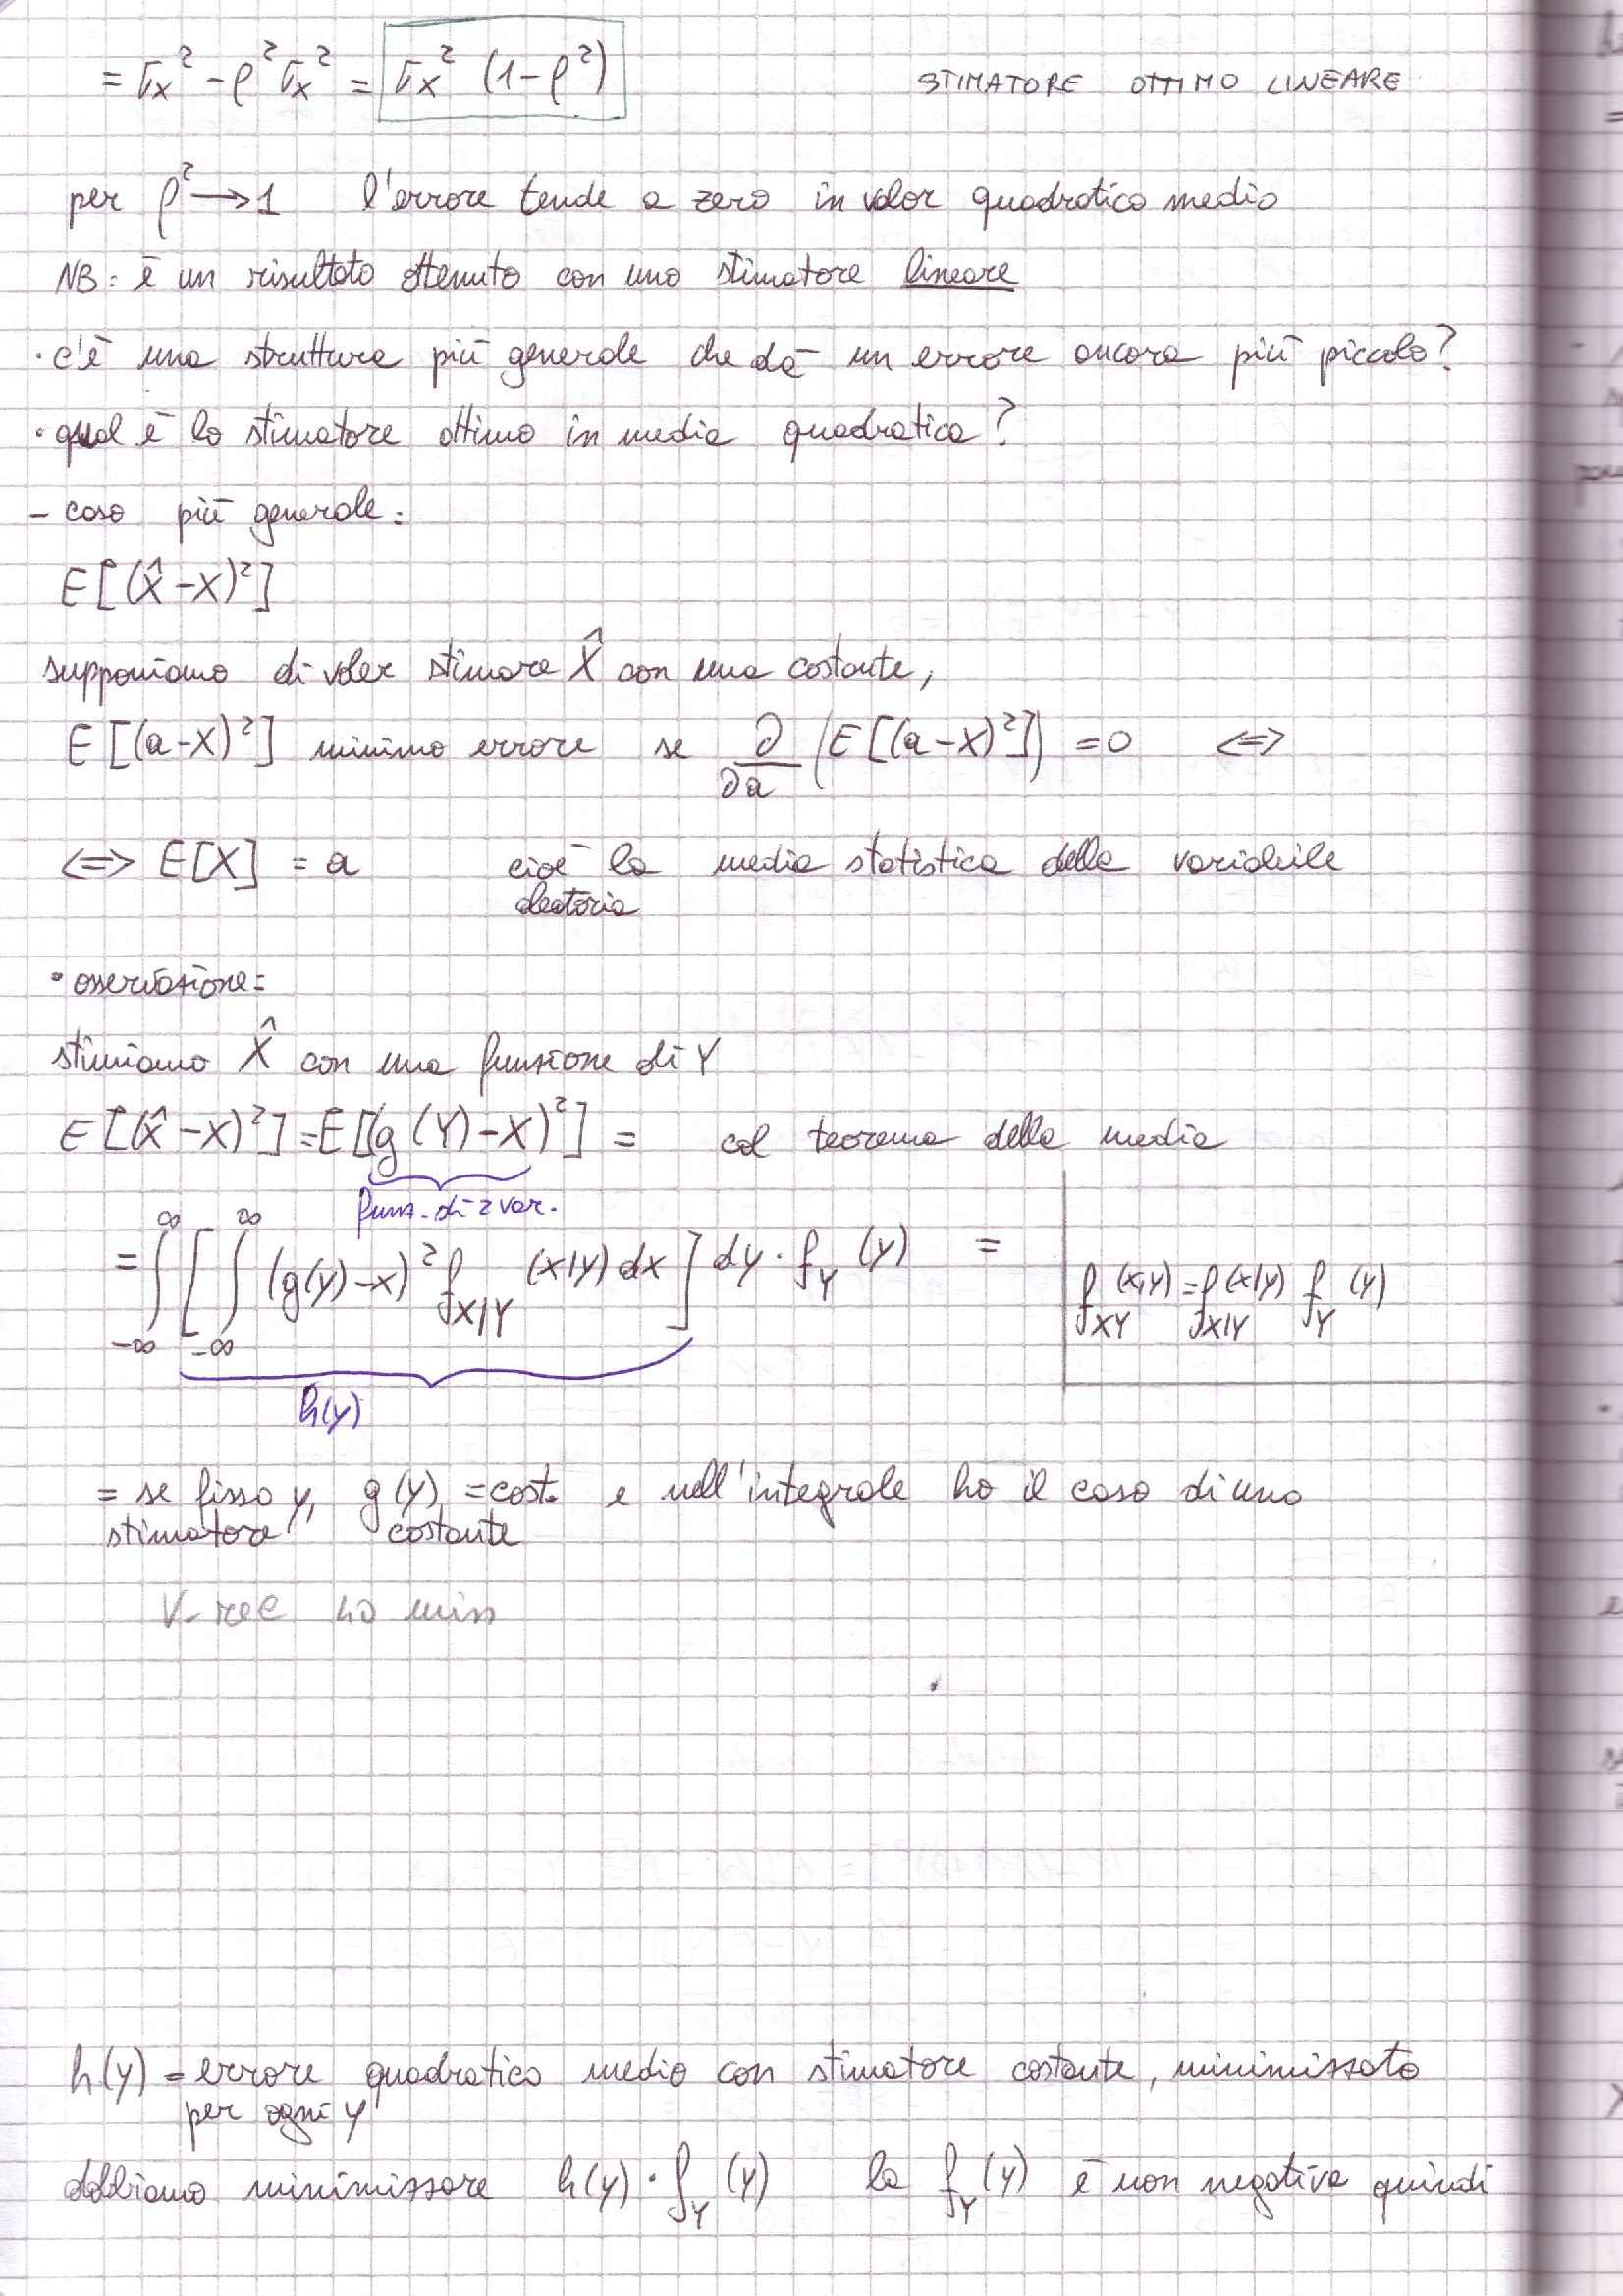 = σx² - ρ²σx² = σx² (1-ρ²) STIMATORE OTTIMO LINEARE
per ρ² → 1 l'errore tende a zero in valor quadratico medio
NB: è un risultato ottenuto con uno stimatore lineare
· c'è una struttura più generale che dà un errore ancora più piccolo?
· qual è lo stimatore ottimo in media quadratica?
- caso più generale:
E[(X̂-X)²]
supponiamo di voler stimare X̂ con una costante,
E[(a-X)²] minimo errore se ∂/∂a (E[(a-X)²]) = 0 <=>
<=> E[X] = a cioè la media statistica della variabile
aleatoria
· osservazione:
stimiamo X̂ con una funzione di Y
E[(X̂-X)²] = E[(g(Y)-X)²] = col teorema della media
funz. di 2 var.
= ∫_{-∞}^{∞} [ ∫_{-∞}^{∞} (g(y)-x)² f_{X|Y} (x|y) dx ] dy · f_Y (y) =
f_{XY} (x,y) = f_{X|Y} (x|y) f_Y (y)
h(y)
= se fisso y, g(y) = cost. e nell'integrale ho il caso di uno
stimatore costante
h(y) = errore quadratico medio con stimatore costante, minimizzato
per ogni y
dobbiamo minimizzare h(y) · f_Y (y) la f_Y (y) è non negativa quindi